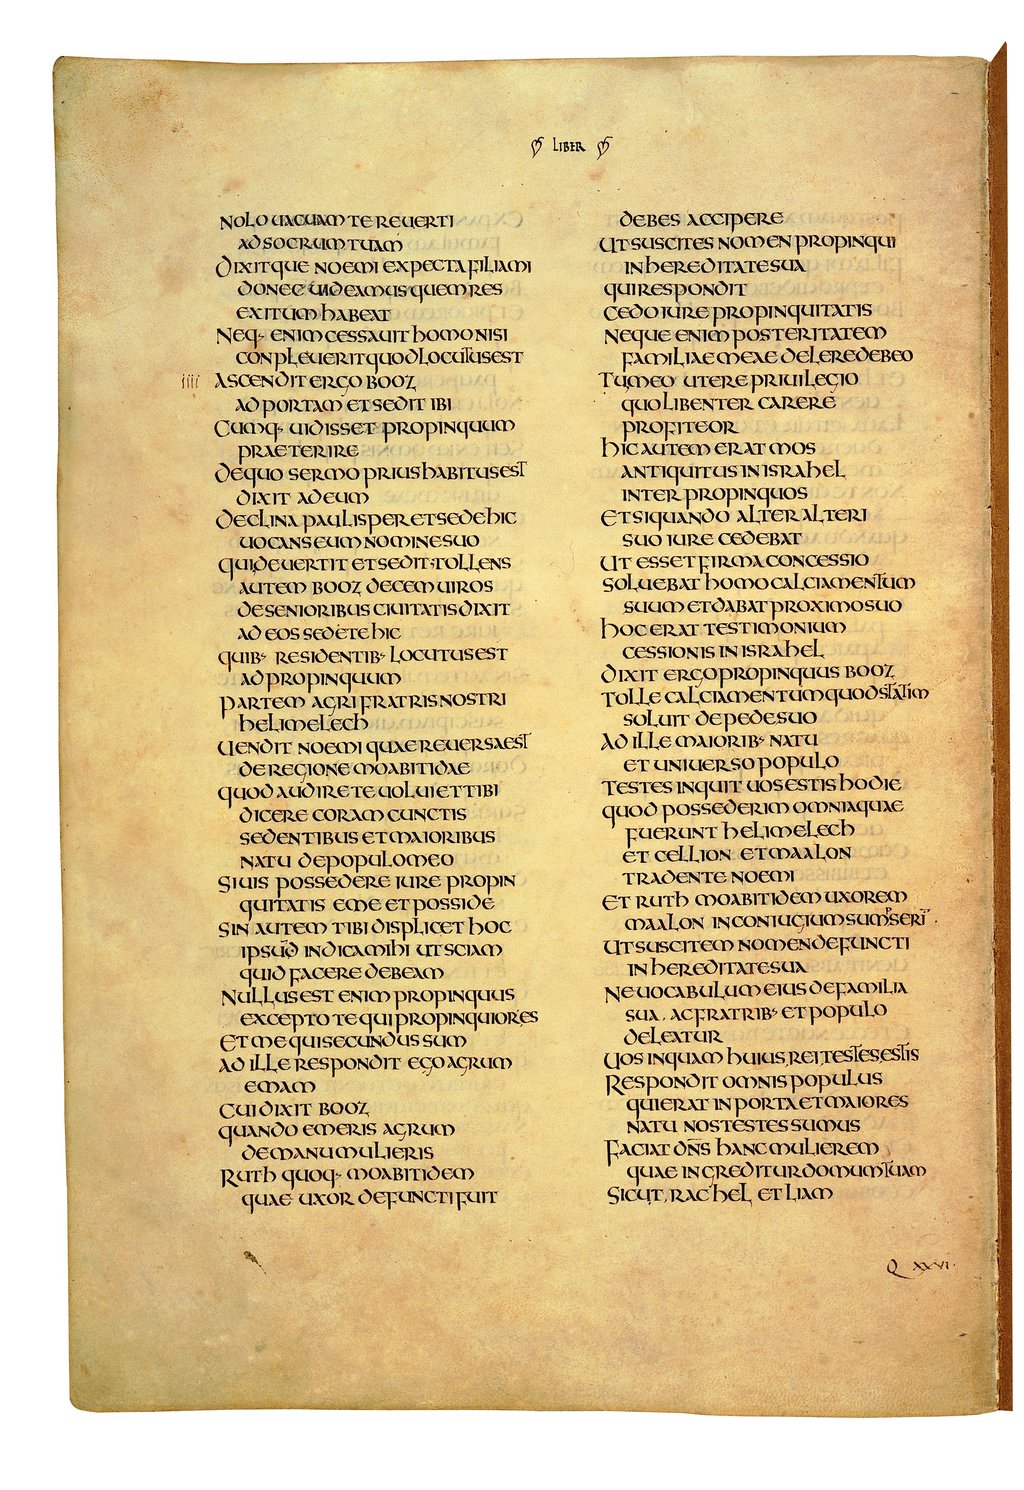 LIBER
NOLO UACUAM TE REUERTI
AD SOCRUM TUAM
DIXITQUE NOEMI EXPECTA FILIA MI
DONEC UIDEAMUS QUEM RES
EXITUM HABEAT
NEQ· ENIM CESSAUIT HOMO NISI
CONPLEUERIT QUOD LOCUTUS EST
IIII ASCENDIT ERGO BOOZ
AD PORTAM ET SEDIT IBI
CUMQ· UIDISSET PROPINQUUM
PRAETERIRE
DE QUO SERMO PRIUS HABITUS EST
DIXIT AD EUM
DECLINA PAULISPER ET SEDE HIC
UOCANS EUM NOMINE SUO
QUI DEUERTIT ET SEDIT· TOLLENS
AUTEM BOOZ DECEM UIROS
DE SENIORIBUS CIUITATIS DIXIT
AD EOS SEDETE HIC
QUIB· RESIDENTIB· LOCUTUS EST
AD PROPINQUUM
PARTEM AGRI FRATRIS NOSTRI
HELIMELECH
UENDIT NOEMI QUAE REUERSA EST
DE REGIONE MOABITIDAE
QUOD AUDIRE TE UOLUI ET TIBI
DICERE CORAM CUNCTIS
SEDENTIBUS ET MAIORIBUS
NATU DE POPULO MEO
SI UIS POSSEDERE IURE PROPIN
QUITATIS EME ET POSSIDE
SIN AUTEM TIBI DISPLICET HOC
IPSUD INDICA MIHI UT SCIAM
QUID FACERE DEBEAM
NULLUS EST ENIM PROPINQUUS
EXCEPTO TE QUI PROPINQUIOR ES
ET ME QUI SECUNDUS SUM
AD ILLE RESPONDIT EGO AGRUM
EMAM
CUI DIXIT BOOZ
QUANDO EMERIS AGRUM
DE MANU MULIERIS
RUTH QUOQ· MOABITIDEM
QUAE UXOR DEFUNCTI FUIT
DEBES ACCIPERE
UT SUSCITES NOMEN PROPINQUI
IN HEREDITATE SUA
QUI RESPONDIT
CEDO IURE PROPINQUITATIS
NEQUE ENIM POSTERITATEM
FAMILIAE MEAE DELERE DEBEO
TU MEO UTERE PRIUILEGIO
QUO LIBENTER CARERE
PROFITEOR
HIC AUTEM ERAT MOS
ANTIQUITUS IN ISRAHEL
INTER PROPINQUOS
ET SI QUANDO ALTER ALTERI
SUO IURE CEDEBAT
UT ESSET FIRMA CONCESSIO
SOLUEBAT HOMO CALCIAMENTUM
SUUM ET DABAT PROXIMO SUO
HOC ERAT TESTIMONIUM
CESSIONIS IN ISRAHEL
DIXIT ERGO PROPINQUUS BOOZ
TOLLE CALCIAMENTUM QUOD STATIM
SOLUIT DE PEDE SUO
AD ILLE MAIORIB· NATU
ET UNIUERSO POPULO
TESTES INQUIT UOS ESTIS HODIE
QUOD POSSEDERIM OMNIA QUAE
FUERUNT HELIMELECH
ET CELLION ET MAALON
TRADENTE NOEMI
ET RUTH MOABITIDEM UXOREM
MAALON IN CONIUGIUM SUMPSERI
UT SUSCITEM NOMEN DEFUNCTI
IN HEREDITATE SUA
NE UOCABULUM EIUS DE FAMILIA
SUA, AC FRATRIB· ET POPULO
DELEATUR
UOS INQUAM HUIUS, REI, TESTES, ESTIS
RESPONDIT OMNIS POPULUS
QUI ERAT IN PORTA ET MAIORES
NATU NOS TESTES SUMUS
FACIAT DN̄S HANC MULIEREM
QUAE INGREDITUR DOMUM TUAM
SICUT, RACHEL ET LIAM
Q XXVI·